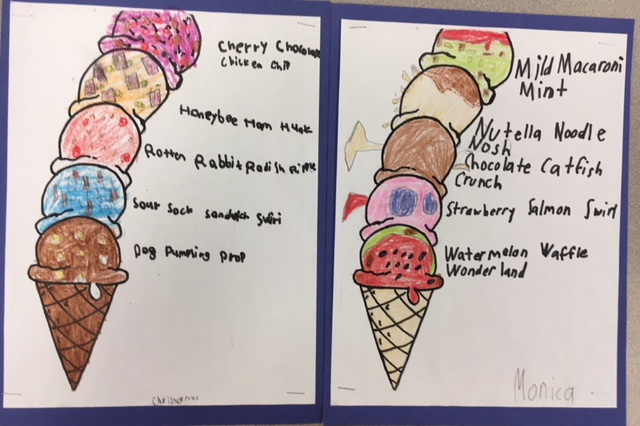 Cherry Chocolate
Chicken Chip
Honeybee Ham Hunk
Rotten Rabbit Radish Ripple
Sour Sock Sandwich Swirl
Dog Dumpling Drop
Mild Macaroni
Mint
Nutella Noodle
Nosh
Chocolate Catfish
Crunch
Strawberry Salmon Swirl
Watermelon Waffle
Wonderland
Monica